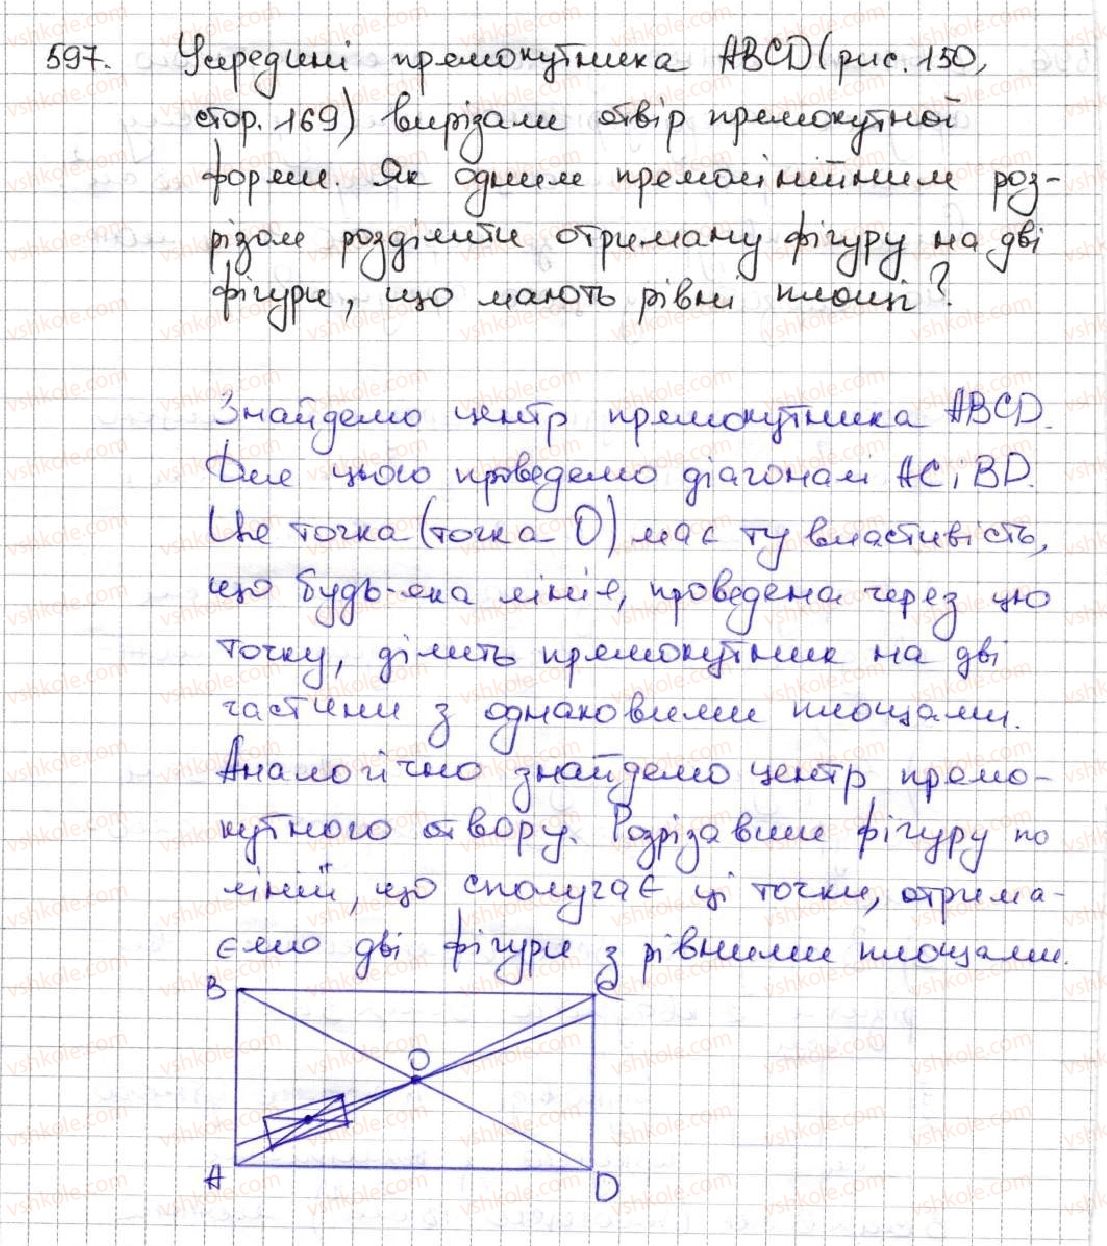 597. Усередині прямокутника ABCD (рис. 150,
стор. 169) вирізали отвір прямокутної
форми. Як одним прямолінійним роз-
різом розділити отриману фігуру на дві
фігури, що мають рівні площі?
Знайдемо центр прямокутника ABCD.
Для цього проведемо діагоналі AC i BD.
Ця точка (точка O) має ту властивість,
що будь-яка лінія, проведена через цю
точку, ділить прямокутник на дві
частини з однаковими площами.
Аналогічно знайдемо центр прямо-
кутного отвору. Розрізавши фігуру по
лінії, що сполучає ці точки, отрима-
ємо дві фігури з рівними площами.
B C
O
A D
vshkole.com